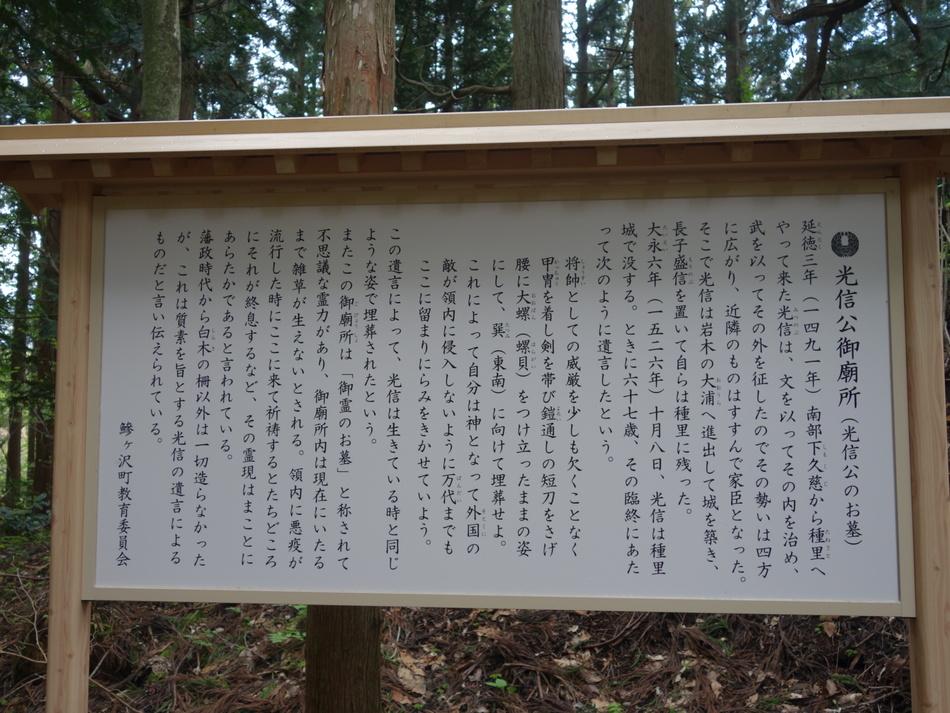 光信公御廟所（光信公のお墓）
延徳三年（一四九一年）南部下久慈から種里へ
やって来た光信は、文を以ってその内を治め、
武を以ってその外を征したのでその勢いは四方
に広がり、近隣のものはすすんで家臣となった。
そこで光信は岩木の大浦へ進出して城を築き、
長子盛信を置いて自らは種里に残った。
大永六年（一五二六年）十月八日、光信は種里
城で没する。ときに六十七歳、その臨終にあた
って次のように遺言したという。
将帥としての威厳を少しも欠くことなく
甲冑を着し剣を帯び鎧通しの短刀をさげ
腰に大螺（螺貝）をつけ立ったままの姿
にして、巽（東南）に向けて埋葬せよ。
これによって自分は神となって外国の
敵が領内に侵入しないように万代までも
ここに留まりにらみをきかせていよう。
この遺言によって、光信は生きている時と同じ
ような姿で埋葬されたという。
またこの御廟所は「御霊のお墓」と称されて
不思議な霊力があり、御廟所内は現在にいたる
まで雑草が生えないとされる。領内に悪疫が
流行した時にここに来て祈祷するとたちどころ
にそれが終息するなど、その霊現はまことに
あらたかであると言われている。
藩政時代から白木の柵以外は一切造らなかった
が、これは質素を旨とする光信の遺言による
ものだと言い伝えられている。
鰺ヶ沢町教育委員会